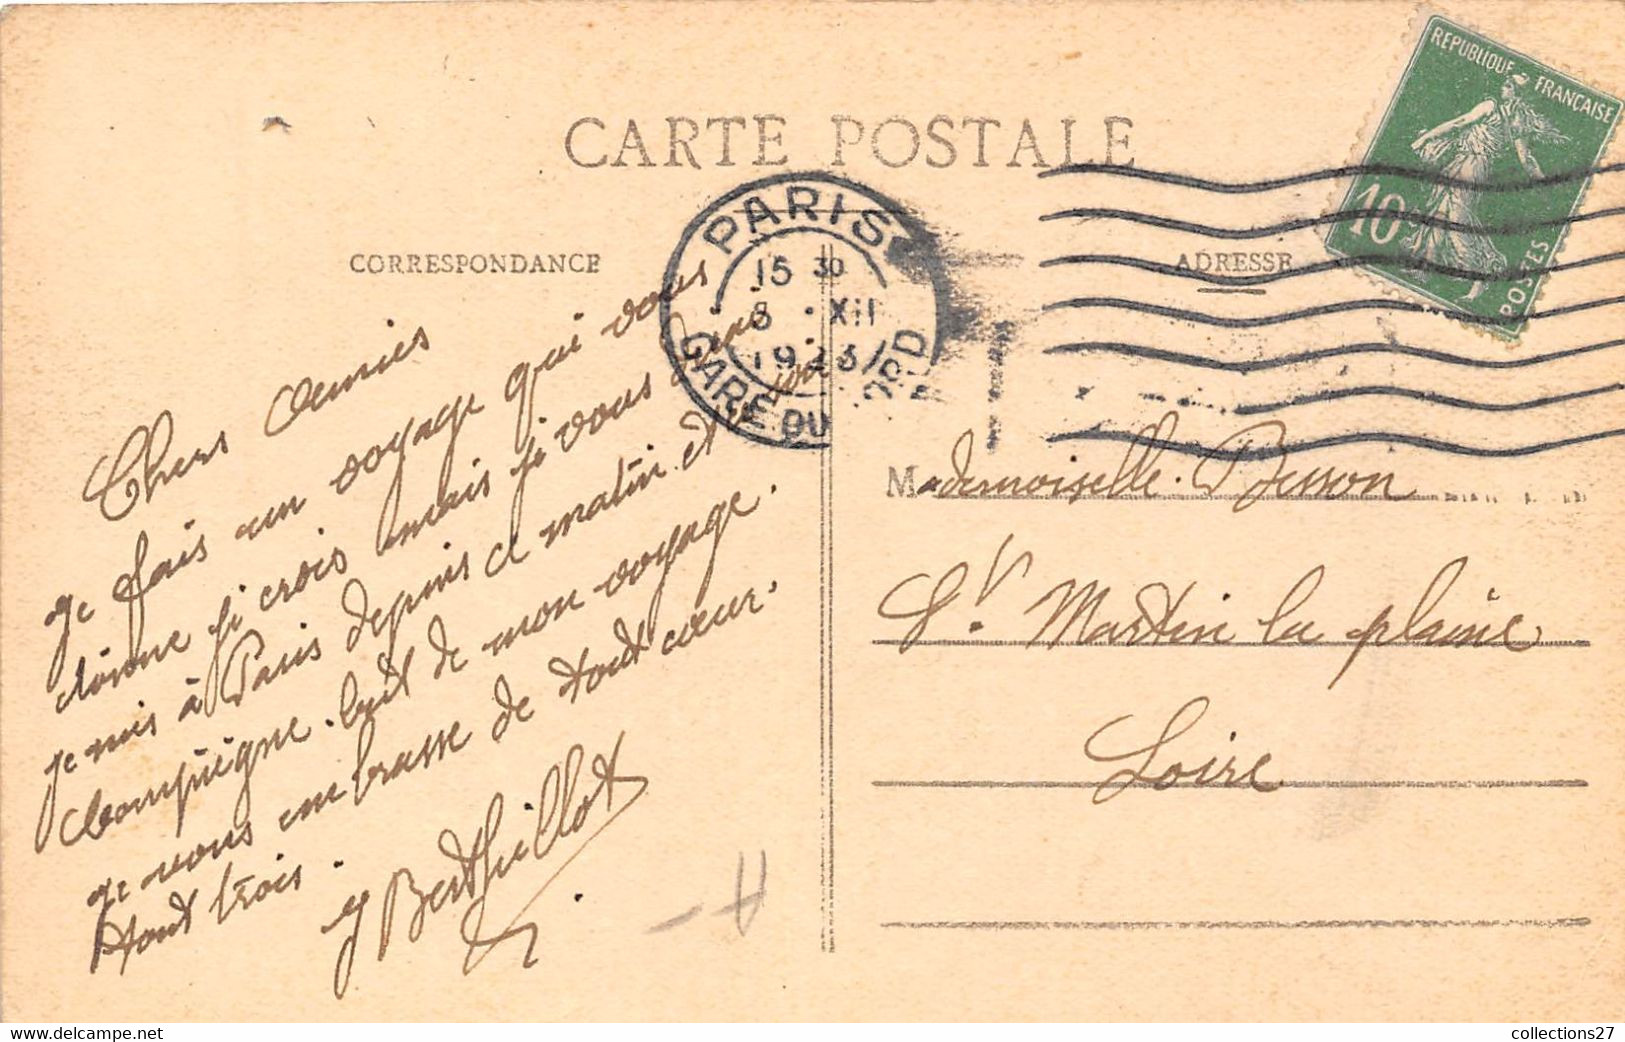 CARTE POSTALE
CORRESPONDANCE
ADRESSE
REPUBLIQUE FRANÇAISE
10
POSTES
PARIS
15 30
8 XII
1923
GARE DU NORD
Chers Amis
Je fais un voyage qui vous
donne je crois mais je vous dirai
je suis à Paris depuis ce matin et
Compiègne but de mon voyage.
Je vous embrasse de tout cœur.
tout trois.
J Berthillot
Mademoiselle Besson
St. Martin la plaine
Loire
collections27